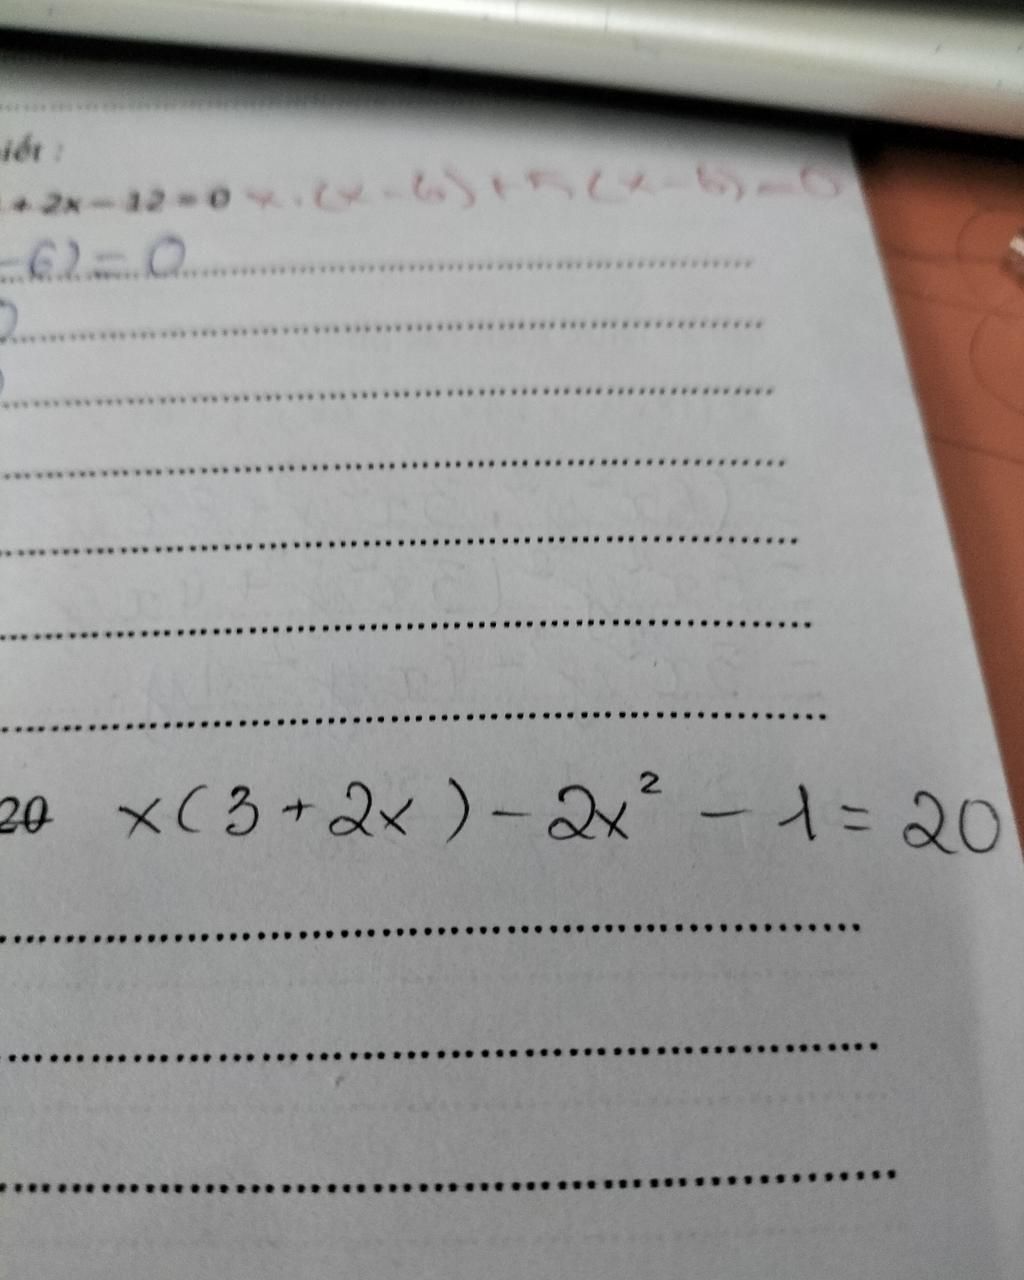 iết :
+ 2x − 12 = 0 x . (x − 6) + 5 (x − 6) = 0
− 6) = 0
20 x(3 + 2x) − 2x² − 1 = 20